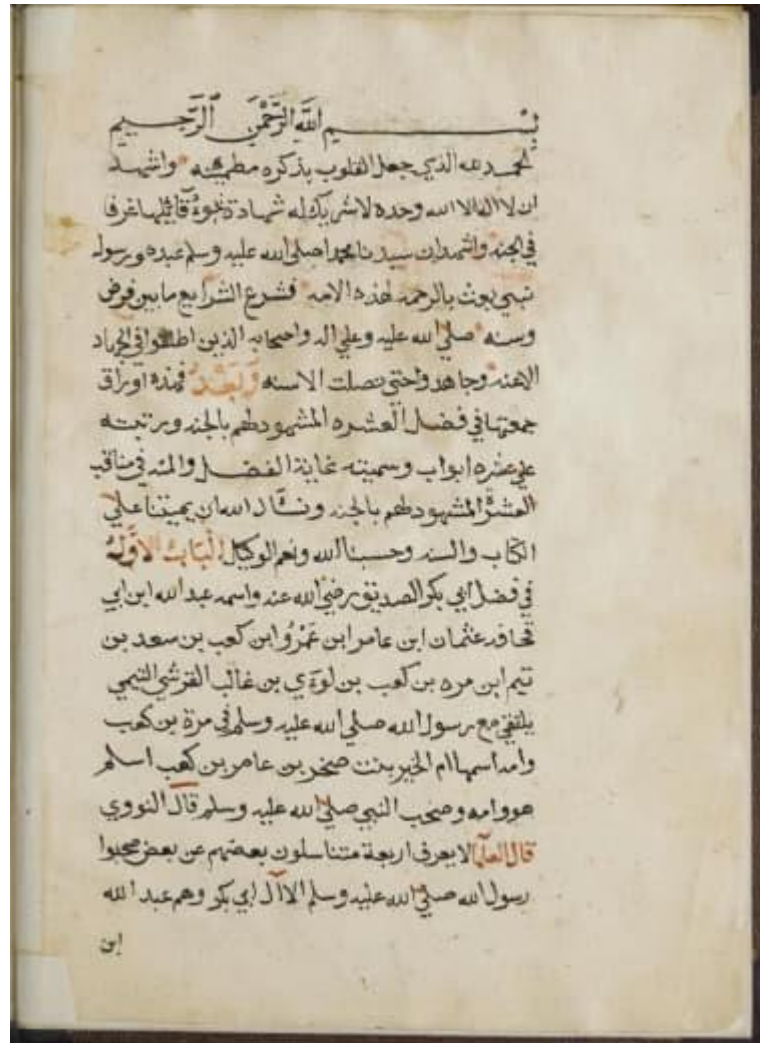 بسم الله الرحمن الرحيم
الحمد لله الذي جعل القلوب بذكره مطمينه واشهد
ان لا اله الا الله وحده لا شريك له شهادة نبوء قايلها غرفا
في الجنه واشهد ان سيدنا محمدا صلي الله عليه وسلم عبده ورسوله
نبي بعث بالرحمه لهذه الامه فشرع الشرايع ما بين فرض
وسنه صلي الله عليه وعلي اله واصحابه الذين اطلقوا في الجهاد
الاعنه وجاهدوا حتي نصلت الاسنه وبعد فهذه اوراق
جمعتها في فضل العشره المشهود لهم بالجنه ورتبته
علي عشره ابواب وسميته غاية الفضل والمنه في مناقب
العشرة المشهود لهم بالجنه ونسال الله ان يميتنا علي
الكتاب والسنه وحسبنا الله ونعم الوكيل الباب الاول
في فضل ابي بكر الصديق رضي الله عنه واسمه عبد الله ابن ابي
قحافه عثمان ابن عامر ابن عمرو ابن كعب بن سعد بن
تيم ابن مره بن كعب بن لوءي بن غالب القرشي التيمي
يلتقي مع رسول الله صلي الله عليه وسلم في مرة بن كعب
وامه اسمها ام الخير بنت صخر بن عامر بن كعب اسلم
هو وامه وصحب النبي صلي الله عليه وسلم قال النووي
قال العلما لا يعرف اربعة متناسلون بعضهم عن بعض صحبوا
رسول الله صلي الله عليه وسلم الا آل ابي بكر وهم عبد الله
ابن